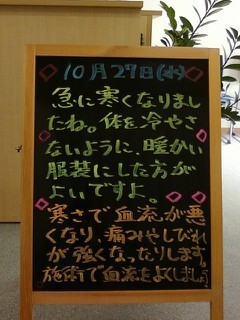 10月29日(水)
急に寒くなりまし
たね。体を冷やさ
ないように、暖かい
服装にした方が
よいですよ。
寒さで血流が悪
くなり、痛みやしびれ
が強くなったりします。
施術で血流をよくしましょう